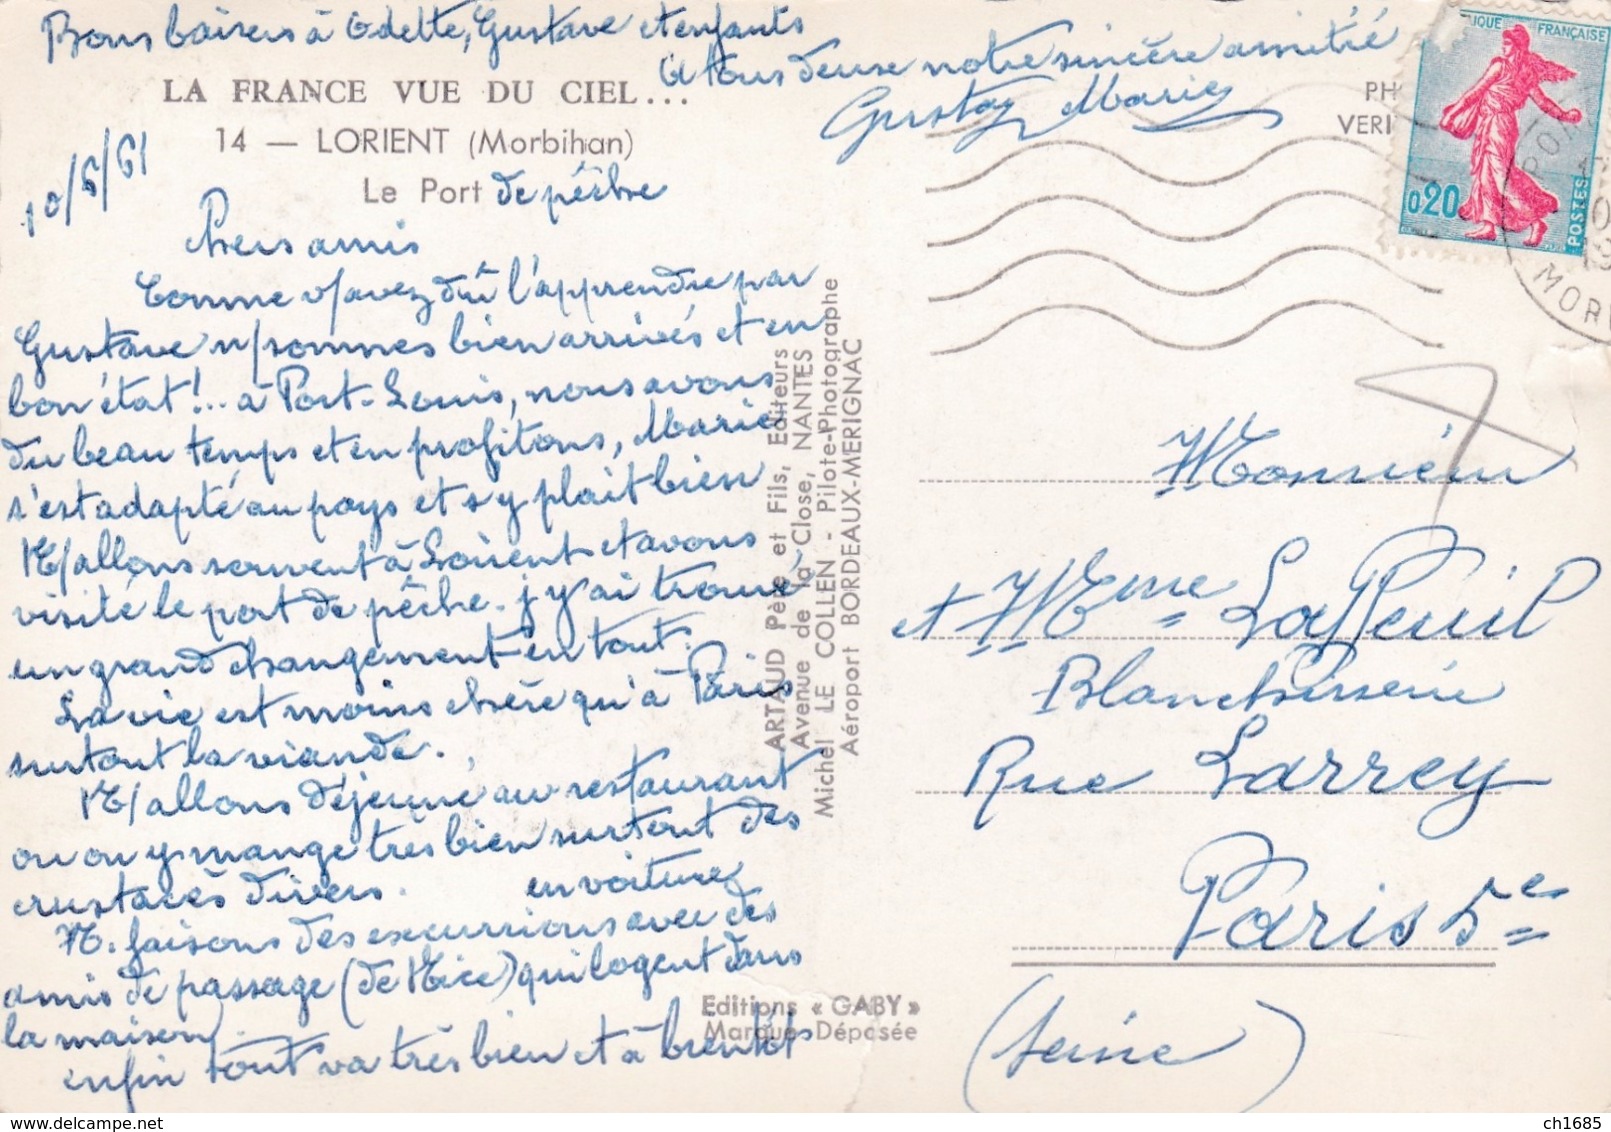 Bons baisers à Odette, Gustave et enfants
A tous deux notre sincère amitié
Gustav Marie
LA FRANCE VUE DU CIEL...
14 — LORIENT (Morbihan)
Le Port de pêche
10/6/61
Chers amis
Comme v/avez dû l'apprendre par
Gustave n/sommes bien arrivés et en
bon état!... à Port-Louis, nous avons
du beau temps et en profitons, Marie
s'est adapté au pays et s'y plait bien
N/allons souvent à Lorient et avons
visité le port de pêche. j'y ai trouvé
un grand changement en tout.
La vie est moins chère qu'à Paris
surtout la viande.
N/allons déjeuné au restaurant
ou on y mange très bien surtout des
crustacés divers.
en voiture
N. faisons des excursions avec des
amis de passage (de Nice) qui logent dans
la maison).
enfin tout va très bien et à bientôt
ARTAUD Père et Fils, Editeurs
Avenue de la Close, NANTES
Michel LE COLLEN - Pilote-Photographe
Aéroport BORDEAUX-MERIGNAC
Editions « GABY »
Marque Déposée
PH
VERI
IQUE FRANÇAISE
0,20
POSTES
MOR
Monsieur
et Mme LaPeuil
Blanchisserie
Rue Larrey
Paris 5e
(Seine)
ch1685